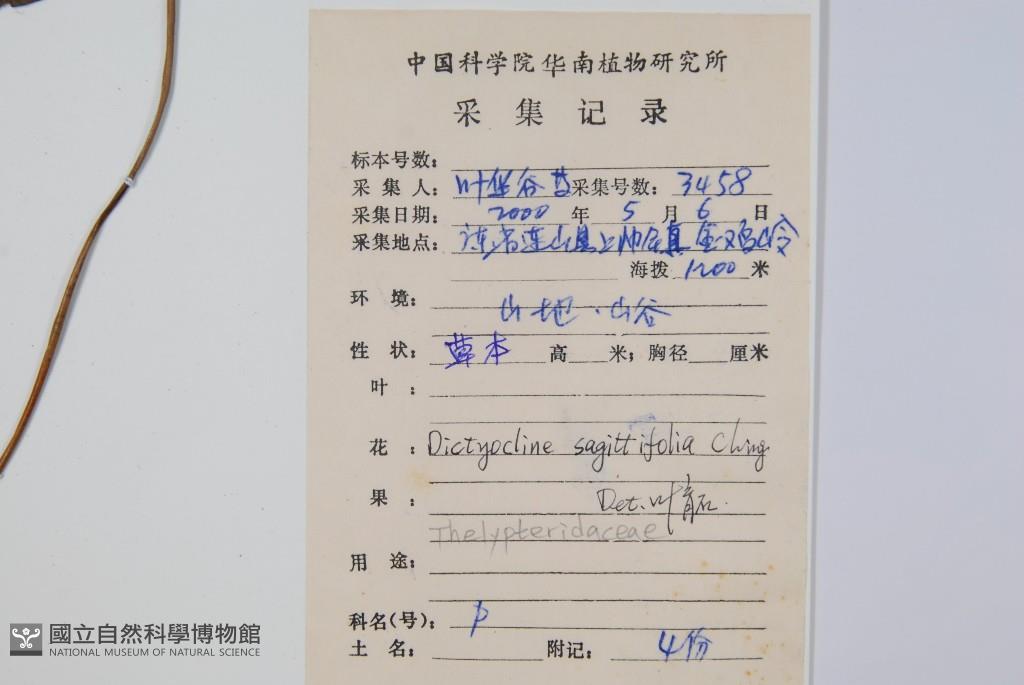 中国科学院华南植物研究所
采集记录
标本号数：
采集人：叶华谷 采集号数：3458
采集日期：2000年5月6日
采集地点：连山县上帅
海拨1200米
环境：
山地·山谷
性状：草本 高 米；胸径 厘米
叶：
花：Dictyocline sagittifolia Ching
果：Det. 叶育石.
Thelypteridaceae
用途：
科名(号)：P
土名： 附记：4份
國立自然科學博物館
NATIONAL MUSEUM OF NATURAL SCIENCE